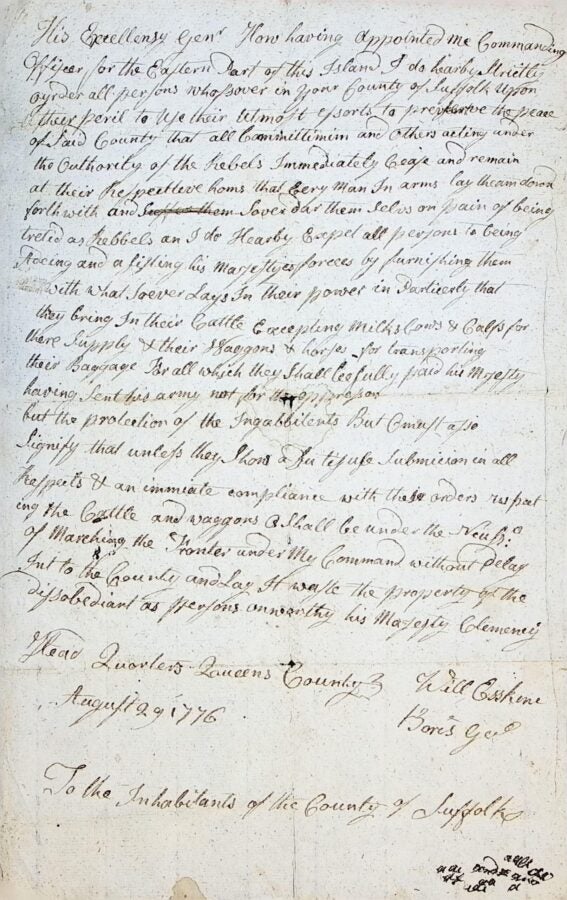 His Excellensy Genr How having Appointed me Commanding
Officer for the Eastern Part of this Island I do hearby Strictly
oyrder all persons whosover in your County of Suffolk Upon
their peril to Use their utmost efforts to preserve the peace
of Said County that all Committimim and Others acting under
the Authority of the Rebels Immediately Cease and remain
at their Respective homs that Every Man In arms lay theam down
forth with and Suffer them Sover dar them Selvs on pain of being
treted as Rebbels an I do Hearby Expet all persons to being
and assisting his Majestyes forces by furnishing them
with what Soever Lays In their power in Particerly that
they bring In their Cattle Excepting Milks Cows & Calfs for
there Supply & their Waggons & horses for transporting
their Baggage For all which they Shall be fully paid his Majesty
having Sent his army not for the oppreson
but the protection of the Ingabbitents But I must also
Signify that unless they Show a Submicion in all
Respects & an immiate compliance with their orders respect
ing the Cattle and waggons I Shall be under the
of Marching the under My Command without Delay
Int to the County and Lay It waste the property of the
dissobediant as persons onworthy his Majesty Clemency
Head Quorters Queens County
Will Erskine
August 29 1776
To the Inhabitants of the County of Suffolk